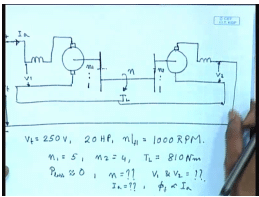 Ia
n1
n2
n
V1
V2
IL
Vt = 250 V, 20 HP, n|fl = 1000 RPM.
n1 = 5, n2 = 4, TL = 810 Nm
Ploss ≈ 0, n = ?? V1 & V2 = ??.
Ia = ??, ϕ, α Ia